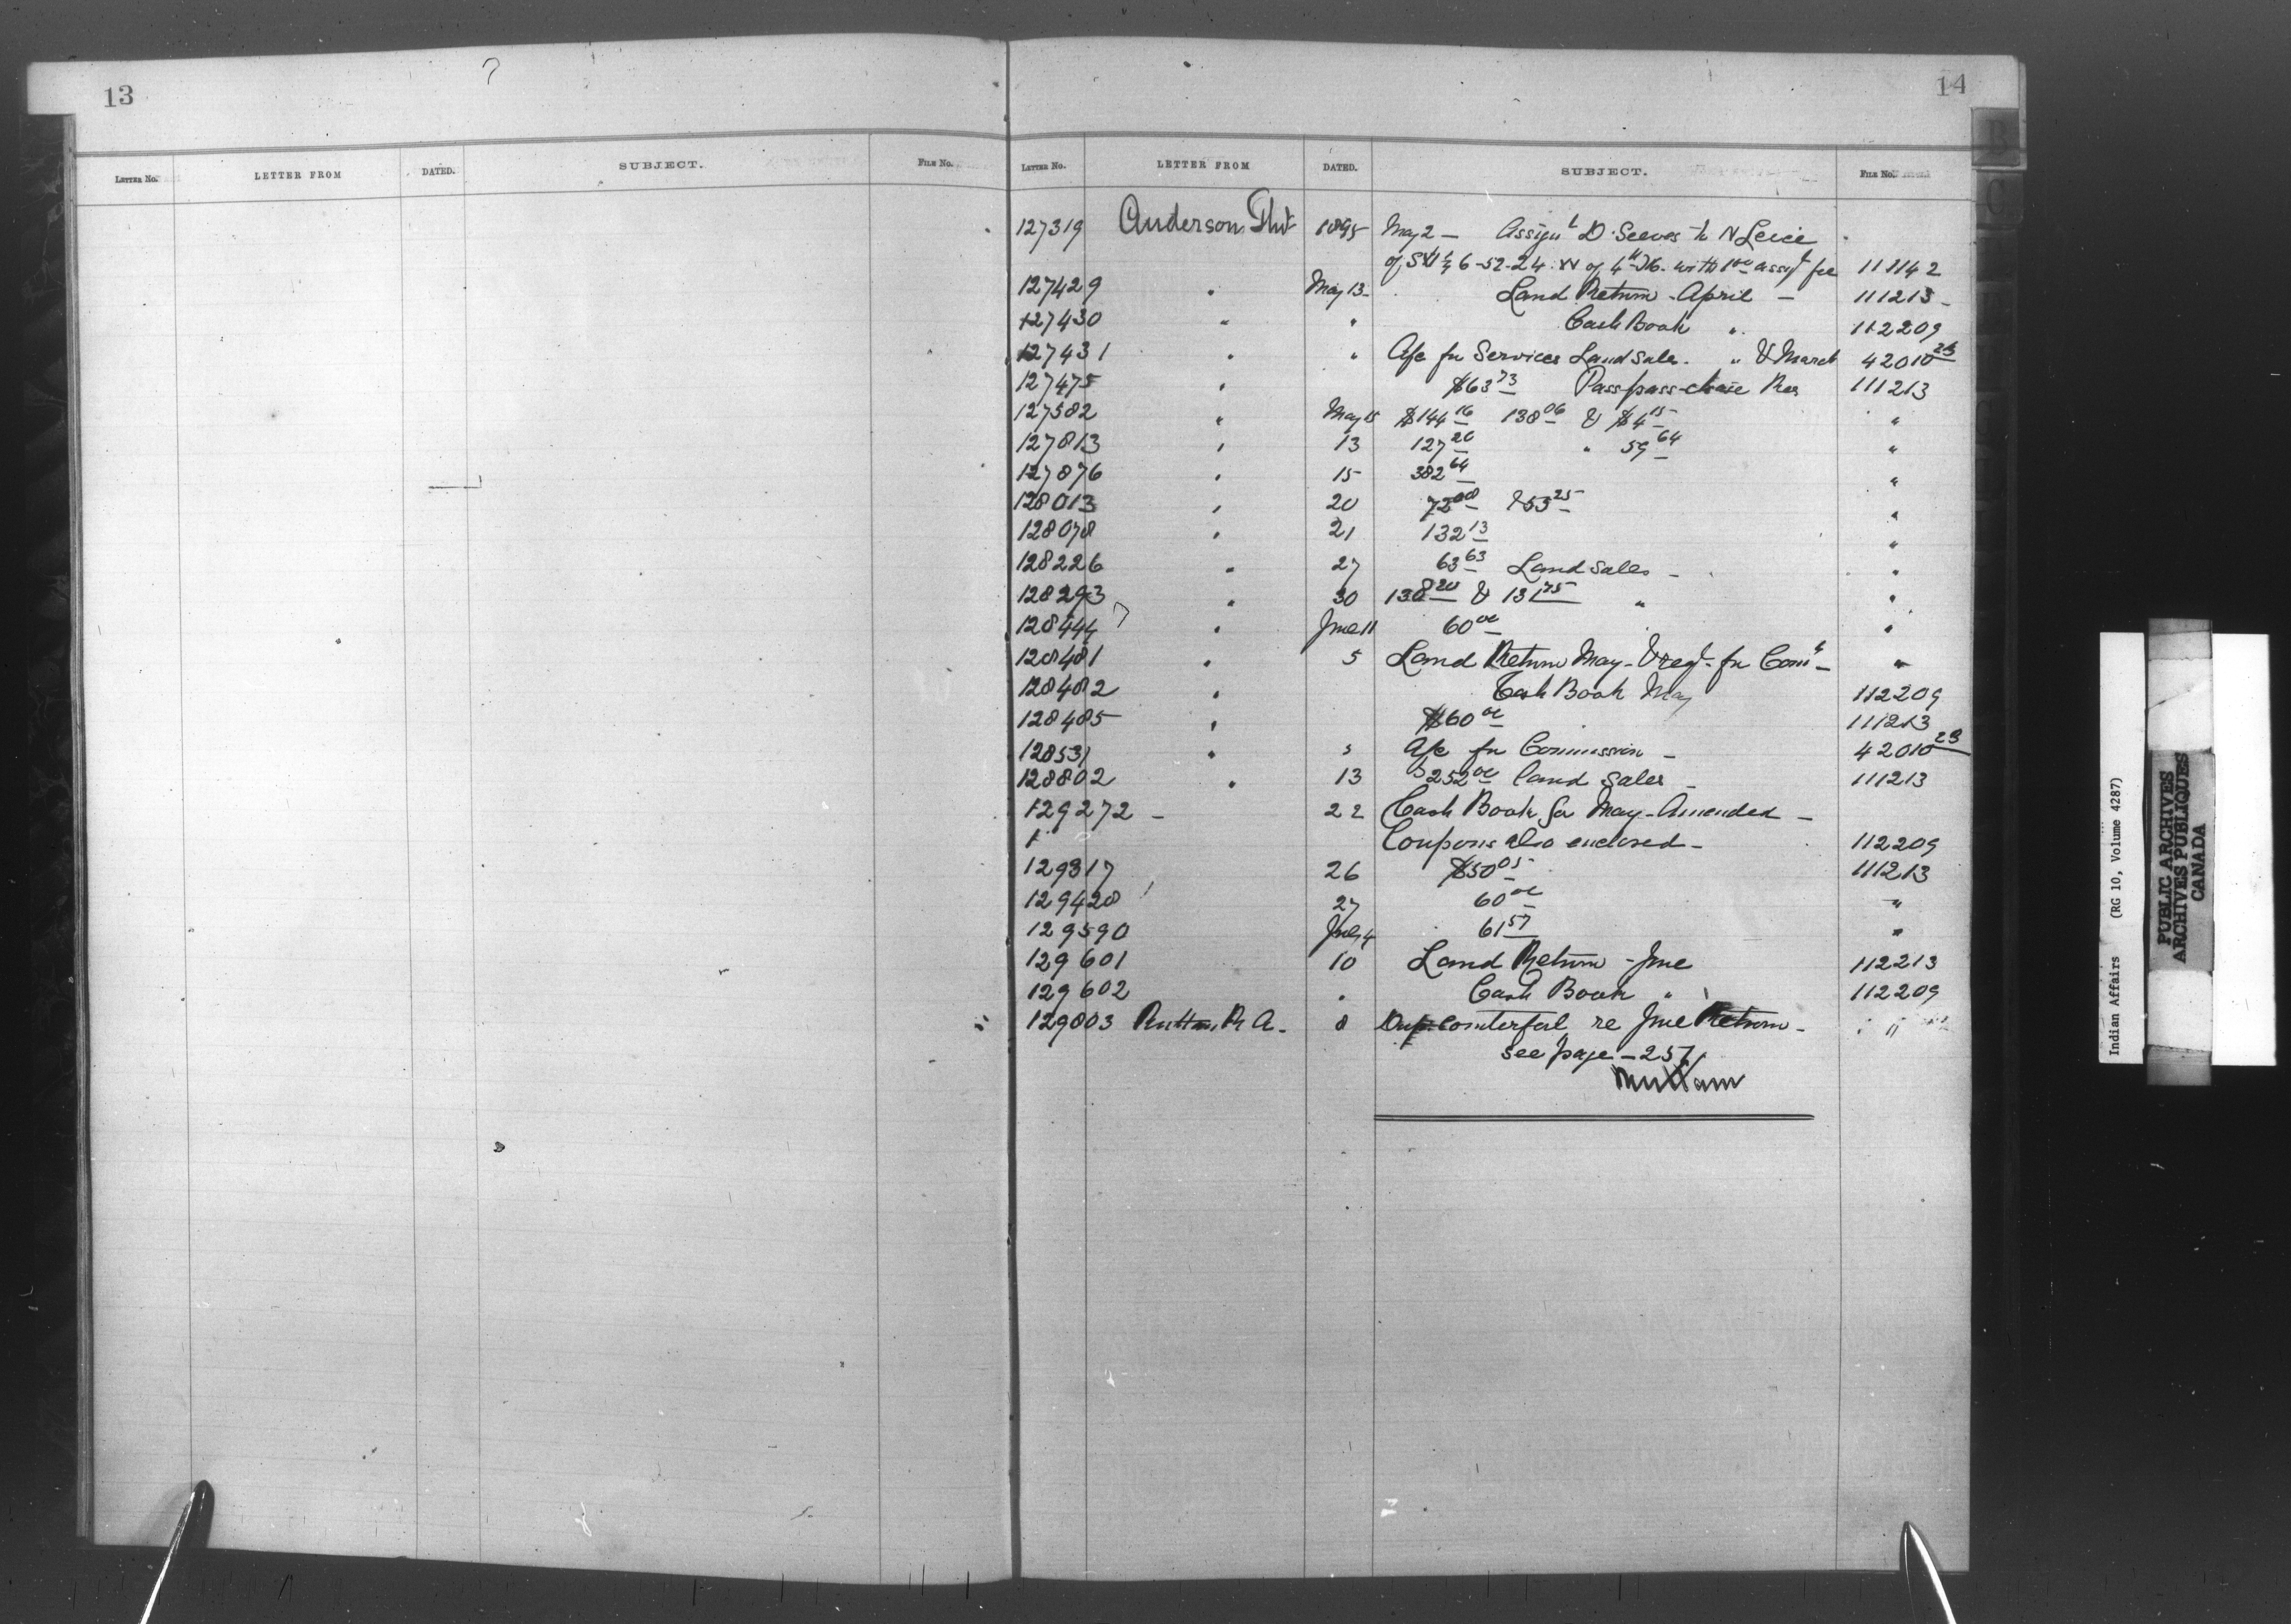 13
14
LETTER No. LETTER FROM DATED. SUBJECT. FILE No.
LETTER No. LETTER FROM DATED. SUBJECT. FILE No.
127319 Anderson 1895 May 2 — Assign t D. Seeves to N
of SW 1/4 6-52-24 W of 4th M. with 1 00 assigt fee 111142
127429 " May 13 Land Return - April — 111213
127430 " " Cash Book " 112209
127431 " " A/c for Services Land Sales " & March 42010 23
127475 " $63 73 111213
127582 " May 15 $144 16 138 06 & $4 15 "
127813 " 13 127 20 " 59 64 "
127876 " 15 382 64 "
128013 " 20 72 00 & 53 25 "
128078 " 21 132 13 "
128226 " 27 63 63 Land Sales — "
128293 " 30 138 20 & 131 75 " "
128444 " June 11 60 00 "
128481 " 5 Land Return May - & regt. for Comn — "
128482 " Cash Book May 112209
128485 " $60 00 111213
128531 " 5 A/c for Commission — 42010 23
128802 " 13 $252 00 Land Sales — 111213
129272 — 22 Cash Book for May - Amended —
Coupons also enclosed — 112209
129317 26 $50 05 111213
129428 27 60 00 "
129590 July 4 61 57 "
129601 10 Land Return - June 112213
129602 " Cash Book " 112209
129803 Ruttan R A. 8 Dup. Counterfoil re June Return — "
see page — 257
Ruttan
B
C
Indian Affairs (RG 10, Volume 4287)
PUBLIC ARCHIVES
ARCHIVES PUBLIQUES
CANADA